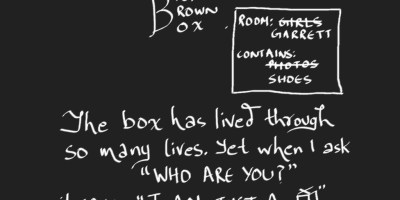 BROWN
BOX
ROOM: GIRLS
GARRETT
CONTAINS:
PHOTOS
SHOES
The box has lived through
so many lives. Yet when I ask
"WHO ARE YOU?"
"I AM JUST A